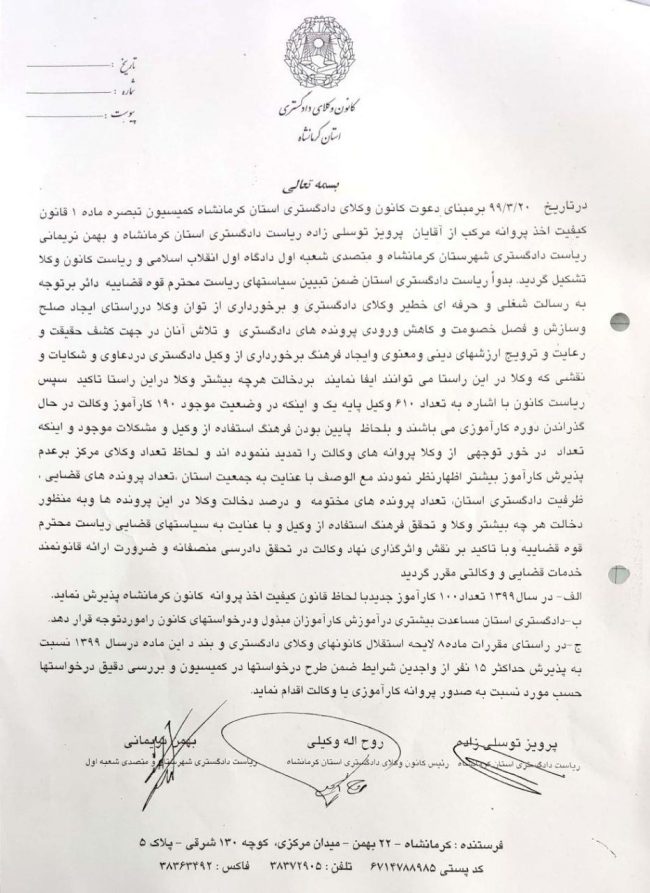 کانون وکلای دادگستری
استان کرمانشاه
تاریخ :
شماره :
پیوست :
بسمه تعالی
درتاریخ ۹۹/۳/۲۰ برمبنای دعوت کانون وکلای دادگستری استان کرمانشاه کمیسیون تبصره ماده ۱ قانون
کیفیت اخذ پروانه مرکب از آقایان پرویز توسلی زاده ریاست دادگستری استان کرمانشاه و بهمن نریمانی
ریاست دادگستری شهرستان کرمانشاه و متصدی شعبه اول دادگاه اول انقلاب اسلامی و ریاست کانون وکلا
تشکیل گردید. بدواً ریاست دادگستری استان ضمن تبیین سیاستهای ریاست محترم قوه قضاییه دائر برتوجه
به رسالت شغلی و حرفه ای خطیر وکلای دادگستری و برخورداری از توان وکلا درراستای ایجاد صلح
وسازش و فصل خصومت و کاهش ورودی پرونده های دادگستری و تلاش آنان در جهت کشف حقیقت و
رعایت و ترویج ارزشهای دینی ومعنوی وایجاد فرهنگ برخورداری از وکیل دادگستری دردعاوی و شکایات و
نقشی که وکلا در این راستا می توانند ایفا نمایند بردخالت هرچه بیشتر وکلا دراین راستا تاکید سپس
ریاست کانون با اشاره به تعداد ۶۱۰ وکیل پایه یک و اینکه در وضعیت موجود ۱۹۰ کارآموز وکالت در حال
گذراندن دوره کارآموزی می باشند و بلحاظ پایین بودن فرهنگ استفاده از وکیل و مشکلات موجود و اینکه
تعداد در خور توجهی از وکلا پروانه های وکالت را تمدید ننموده اند و لحاظ تعداد وکلای مرکز برعدم
پذیرش کارآموز بیشتر اظهارنظر نمودند مع الوصف با عنایت به جمعیت استان ،تعداد پرونده های قضایی ،
ظرفیت دادگستری استان، تعداد پرونده های مختومه و درصد دخالت وکلا در این پرونده ها وبه منظور
دخالت هر چه بیشتر وکلا و تحقق فرهنگ استفاده از وکیل و با عنایت به سیاستهای قضایی ریاست محترم
قوه قضاییه وبا تاکید بر نقش واثرگذاری نهاد وکالت در تحقق دادرسی منصفانه و ضرورت ارائه قانونمند
خدمات قضایی و وکالتی مقرر گردید
الف- در سال۱۳۹۹ تعداد۱۰۰ کارآموز جدیدبا لحاظ قانون کیفیت اخذ پروانه کانون کرمانشاه پذیرش نماید.
ب-دادگستری استان مساعدت بیشتری درآموزش کارآموزان مبذول ودرخواستهای کانون راموردتوجه قرار دهد.
ج-در راستای مقررات ماده۸ لایحه استقلال کانونهای وکلای دادگستری و بند د این ماده درسال ۱۳۹۹ نسبت
به پذیرش حداکثر ۱۵ نفر از واجدین شرایط ضمن طرح درخواستها در کمیسیون و بررسی دقیق درخواستها
حسب مورد نسبت به صدور پروانه کارآموزی یا وکالت اقدام نماید.
پرویز توسلی زاده روح اله وکیلی بهمن نریمانی
ریاست دادگستری استان کرمانشاه رئیس کانون وکلای دادگستری استان کرمانشاه ریاست دادگستری شهرستان و متصدی شعبه اول
فرستنده : کرمانشاه - ۲۲ بهمن - میدان مرکزی، کوچه ۱۳۰ شرقی - پلاک ۵
کد پستی ۶۷۱۴۷۸۸۹۸۵ تلفن : ۳۸۳۷۲۹۰۵ فاکس : ۳۸۳۶۳۴۹۲